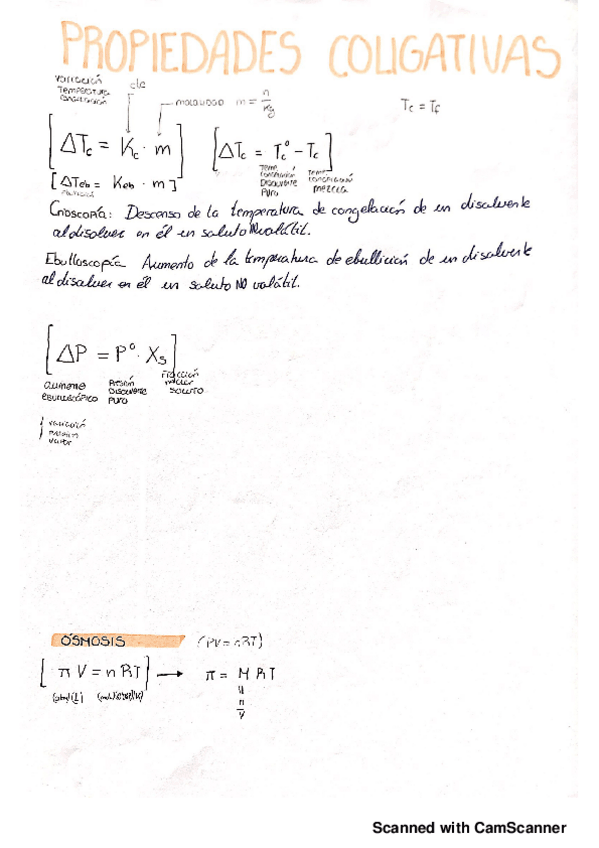 PROPIEDADES COLIGATIVAS
variación
Temperatura
congelación
cte
molalidad m = n/kg
Tc = Tf
[ΔTc = Kc · m] [ΔTc = Tc° - Tc]
Temp congelación Disolvente Puro
Temp congelación mezcla
[ΔTeb = Keb · m]
Crioscopía: Descenso de la temperatura de congelación de un disolvente
al disolver en él un soluto NO volátil.
Ebulloscopía Aumento de la temperatura de ebullición de un disolvente
al disolver en él un soluto NO volátil.
[ΔP = P° · Xs]
aumento ebulloscópico
Presión Disolvente Puro
Fracción molar soluto
variación
presión
vapor
ÓSMOSIS (PV = nRT)
[π V = n RT] → π = M RT
n
V
Scanned with CamScanner